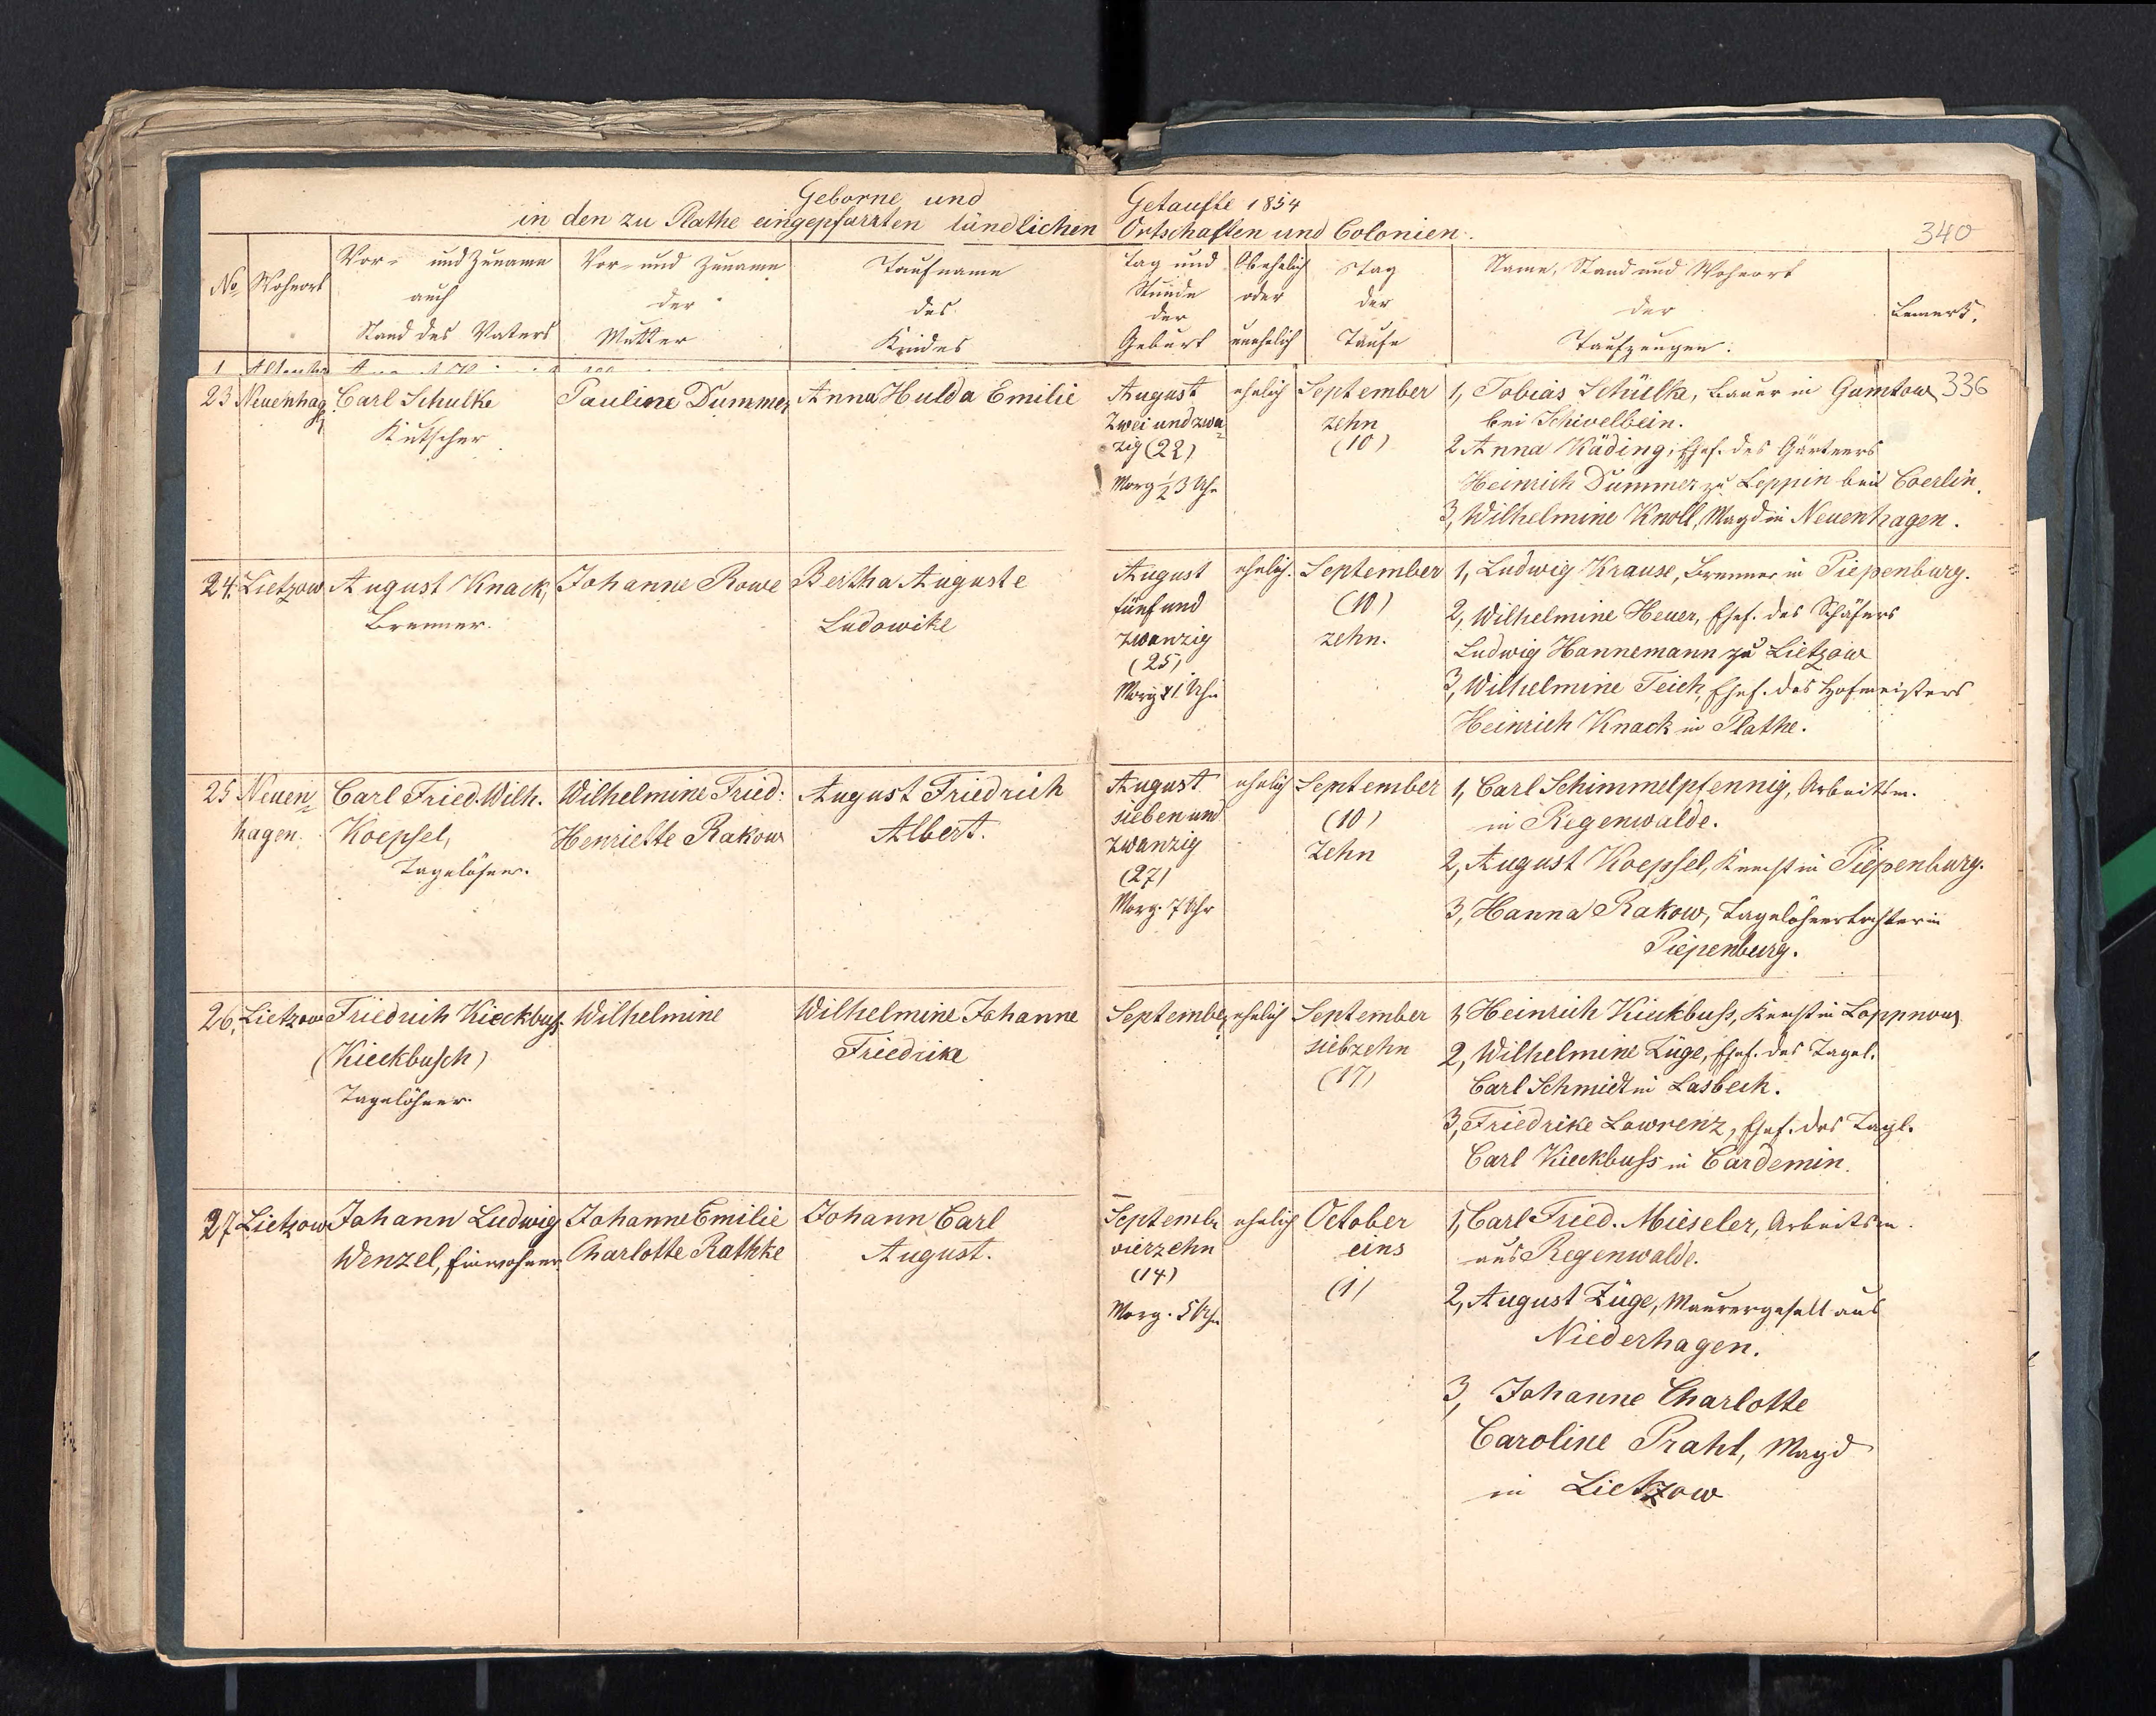 Geborne und Getaufte 1854
in den zu Plathe eingepfarrten ländlichen Ortschaften und Colonien.
340
No. Wohnort
Vor- und Zuname
auch
Stand des Vaters
Vor- und Zuname
der
Mutter
Taufname
des
Kindes
Tag und
Stunde
der
Geburt
Ob ehelich
oder
unehelich
Tag
der
Taufe
Name, Stand und Wohnort
der
Taufzeugen.
Bemerk.
1
336
23 Neuenhag.
Carl Schulke
Kutscher
Pauline Dummer
Anna Hulda Emilie
August
zwei und zwan
zig (22)
Morg 1/2 3 Uhr
ehelich
September
zehn
(10)
1, Tobias Schülke, Bauer in Gumtow
bei Schivelbein.
2 Anna Käding, Ehef. des Gärtners
Heinrich Dummer zu Leppin bei Coerlin.
3, Wilhelmine Knoll, Magd in Neuenhagen.
24. Lietzow
August Knack,
Brenner.
Johanne Rowe
Bertha Auguste
Ludowike
August
fünf und
zwanzig
(25)
Morg 1 Uhr
ehelich.
September
(10)
zehn.
1, Ludwig Krause, Brenner in Piepenburg.
2, Wilhelmine Heuer, Ehef. des Schäfers
Ludwig Hannemann zu Lietzow
3, Wilhelmine Teich, Ehef. des Hofmeisters
Heinrich Knack in Plathe.
25 Neuen
hagen.
Carl Fried. Wilh.
Koepsel,
Tagelöhner.
Wilhelmine Fried:
Henriette Rakow
August Friedrich
Albert.
August
sieben und
zwanzig
(27)
Morg. 7 Uhr
ehelich
September
(10)
zehn
1, Carl Schimmelpfennig, Arbeitsm.
in Regenwalde.
2, August Koepsel, Knecht in Piepenburg.
3, Hanna Rakow, Tagelöhnertochter in
Piepenburg.
26, Lietzow
Friedrich Kieckbuß.
(Kieckbusch)
Tagelöhner.
Wilhelmine
Wilhelmine Johanne
Friedrike
September
ehelich
September
siebzehn
(17)
1, Heinrich Kieckbuss, Knecht in Loppnow
2, Wilhelmine Züge, Ehef. des Tagel.
Carl Schmidt in Lasbeck.
3, Friedrike Lawrenz, Ehef. des Tagl.
Carl Kieckbuss in Cardemin.
27 Lietzow
Johann Ludwig
Wenzel, Einwohner
Johanne Emilie
Charlotte Rathke
Johann Carl
August.
Septembr
vierzehn
(14)
Morg. 5 Uhr
ehelich
October
eins
(1)
1, Carl Fried. Mieseler, Arbeitsm.
aus Regenwalde.
2, August Züge, Maurergesell aus
Niederhagen.
3, Johanne Charlotte
Caroline Prahl, Magd
in Lietzow